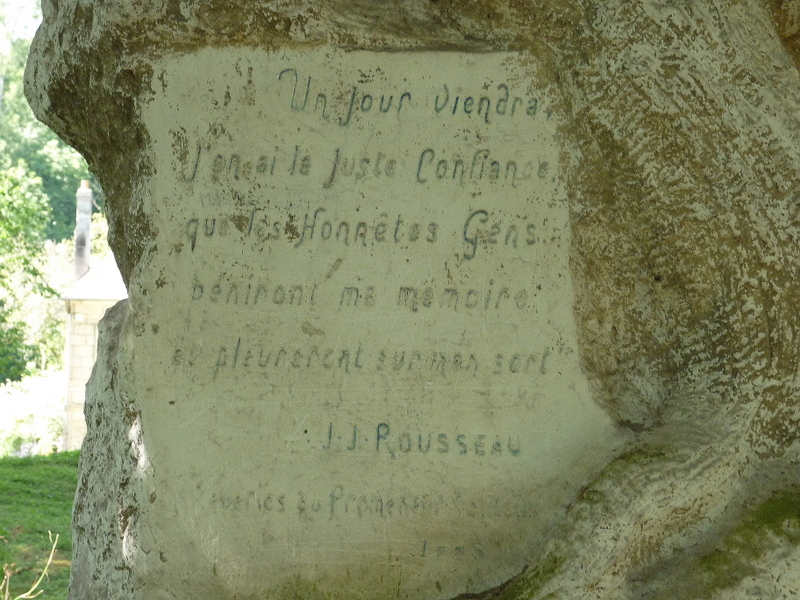 Un Jour viendra,
J'en ai la Juste Confiance
que les Honnêtes Gens
béniront ma mémoire
et pleureront sur mon sort"
J.J. ROUSSEAU
du Promeneur